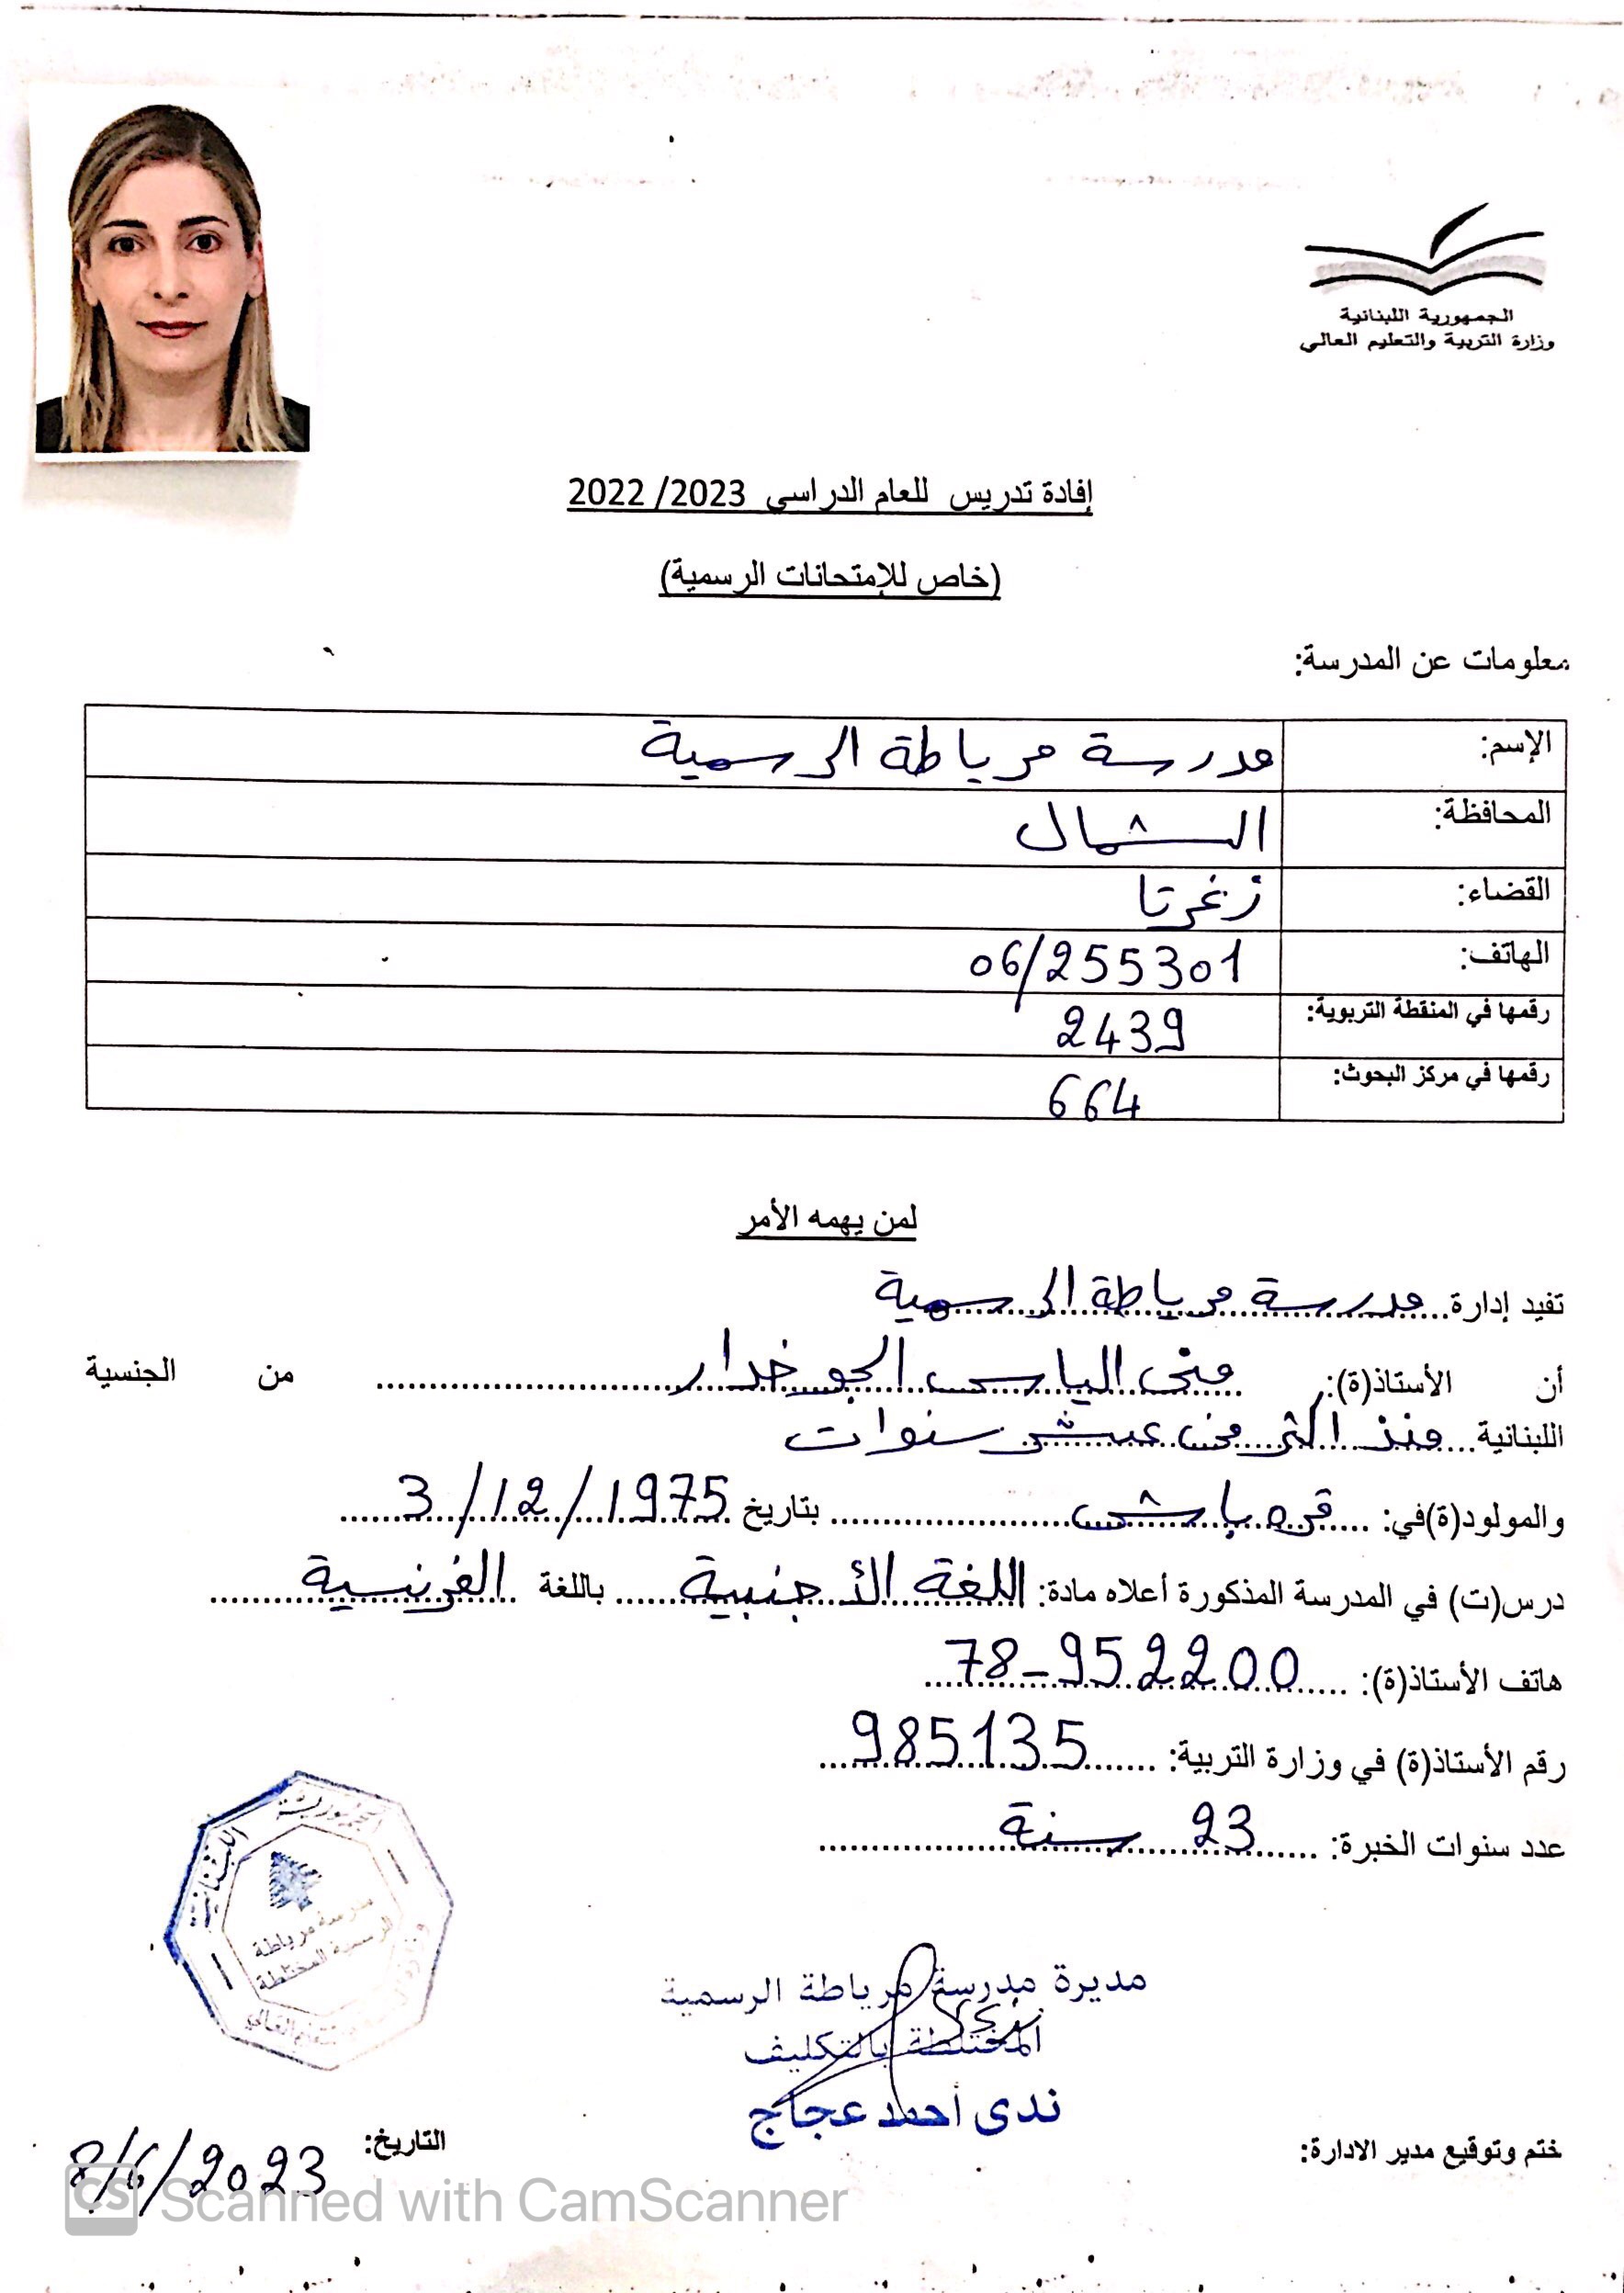 الجمهورية اللبنانية
وزارة التربية والتعليم العالي
إفادة تدريس للعام الدراسي 2023/ 2022
(خاص للإمتحانات الرسمية)
معلومات عن المدرسة:
الإسم: مدرسة مرياطة الرسمية
المحافظة: الشمال
القضاء: زغرتا
الهاتف: 06/255301
رقمها في المنقطة التربوية: 2439
رقمها في مركز البحوث: 664
لمن يهمه الأمر
تفيد إدارة مدرسة مرياطة الرسمية
أن الأستاذ(ة): منى الياس الجوخدار من الجنسية
اللبنانية منذ اكثر من عشر سنوات
والمولود(ة)في: قره باش بتاريخ 3/12/1975
درس(ت) في المدرسة المذكورة أعلاه مادة: اللغة الأجنبية باللغة الفرنسية
هاتف الأستاذ(ة): 78-952200
رقم الأستاذ(ة) في وزارة التربية: 985135
عدد سنوات الخبرة: 23 سنة
الجمهورية اللبنانية
مدرسة مرياطة
الرسمية المختلطة
مديرة مدرسة مرياطة الرسمية
المختلطة بالتكليف
ندى أحمد عجاج
ختم وتوقيع مدير الادارة:
التاريخ: 8/6/2023
CS Scanned with CamScanner